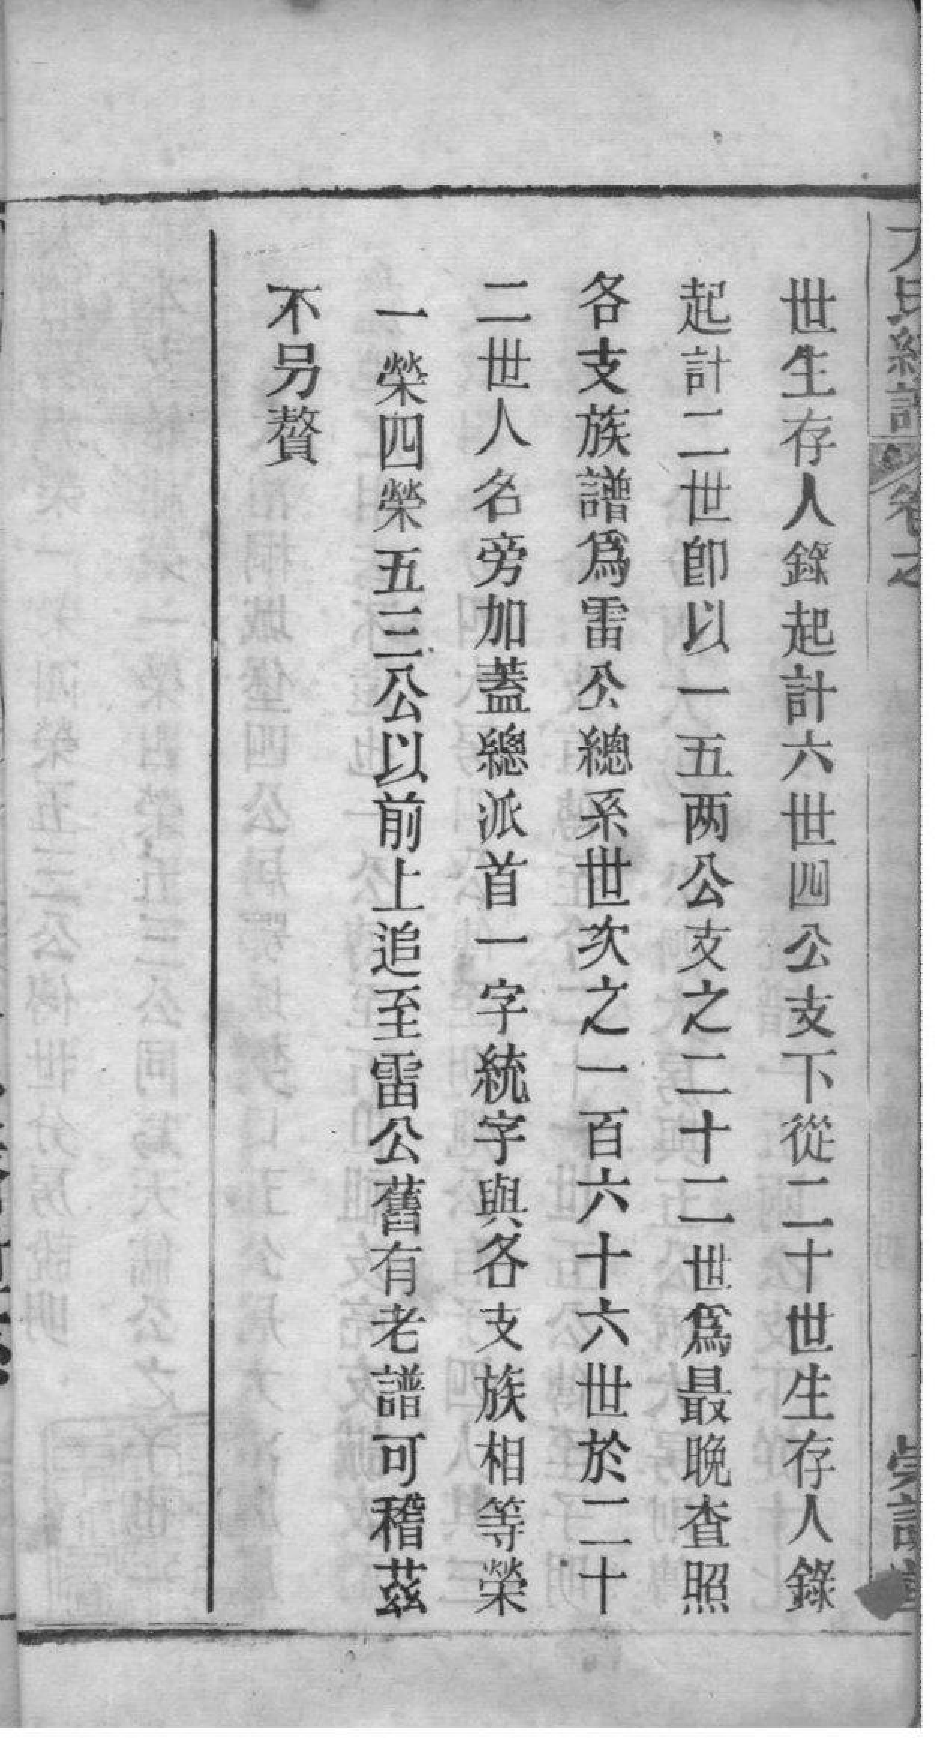 世生存人錄起計六世四公支下從二十世生存人錄
起計二世卽以一五两公支之二十二世爲最晚查照
各支族譜爲雷公總系世次之一百六十六世於二十
二世人名旁加蓋總派首一字統字與各支族相等榮
一榮四榮五三公以前上追至雷公舊有老譜可稽茲
不另贅